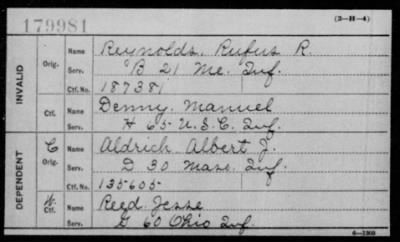 179981
(3-H-4)
INVALID
Orig. Name Reynolds, Rufus R.
Serv. B 21 Me. Inf.
Ctf. No. 187381
Ctf. Name Denny, Manuel
Serv. H 65 U.S.C. Inf.
DEPENDENT
C Orig. Name Aldrich Albert J.
Serv. D 30 Mass. Inf.
Ctf. No. 135605
W. Ctf. Name Reed Jesse
Serv. G 60 Ohio Inf.